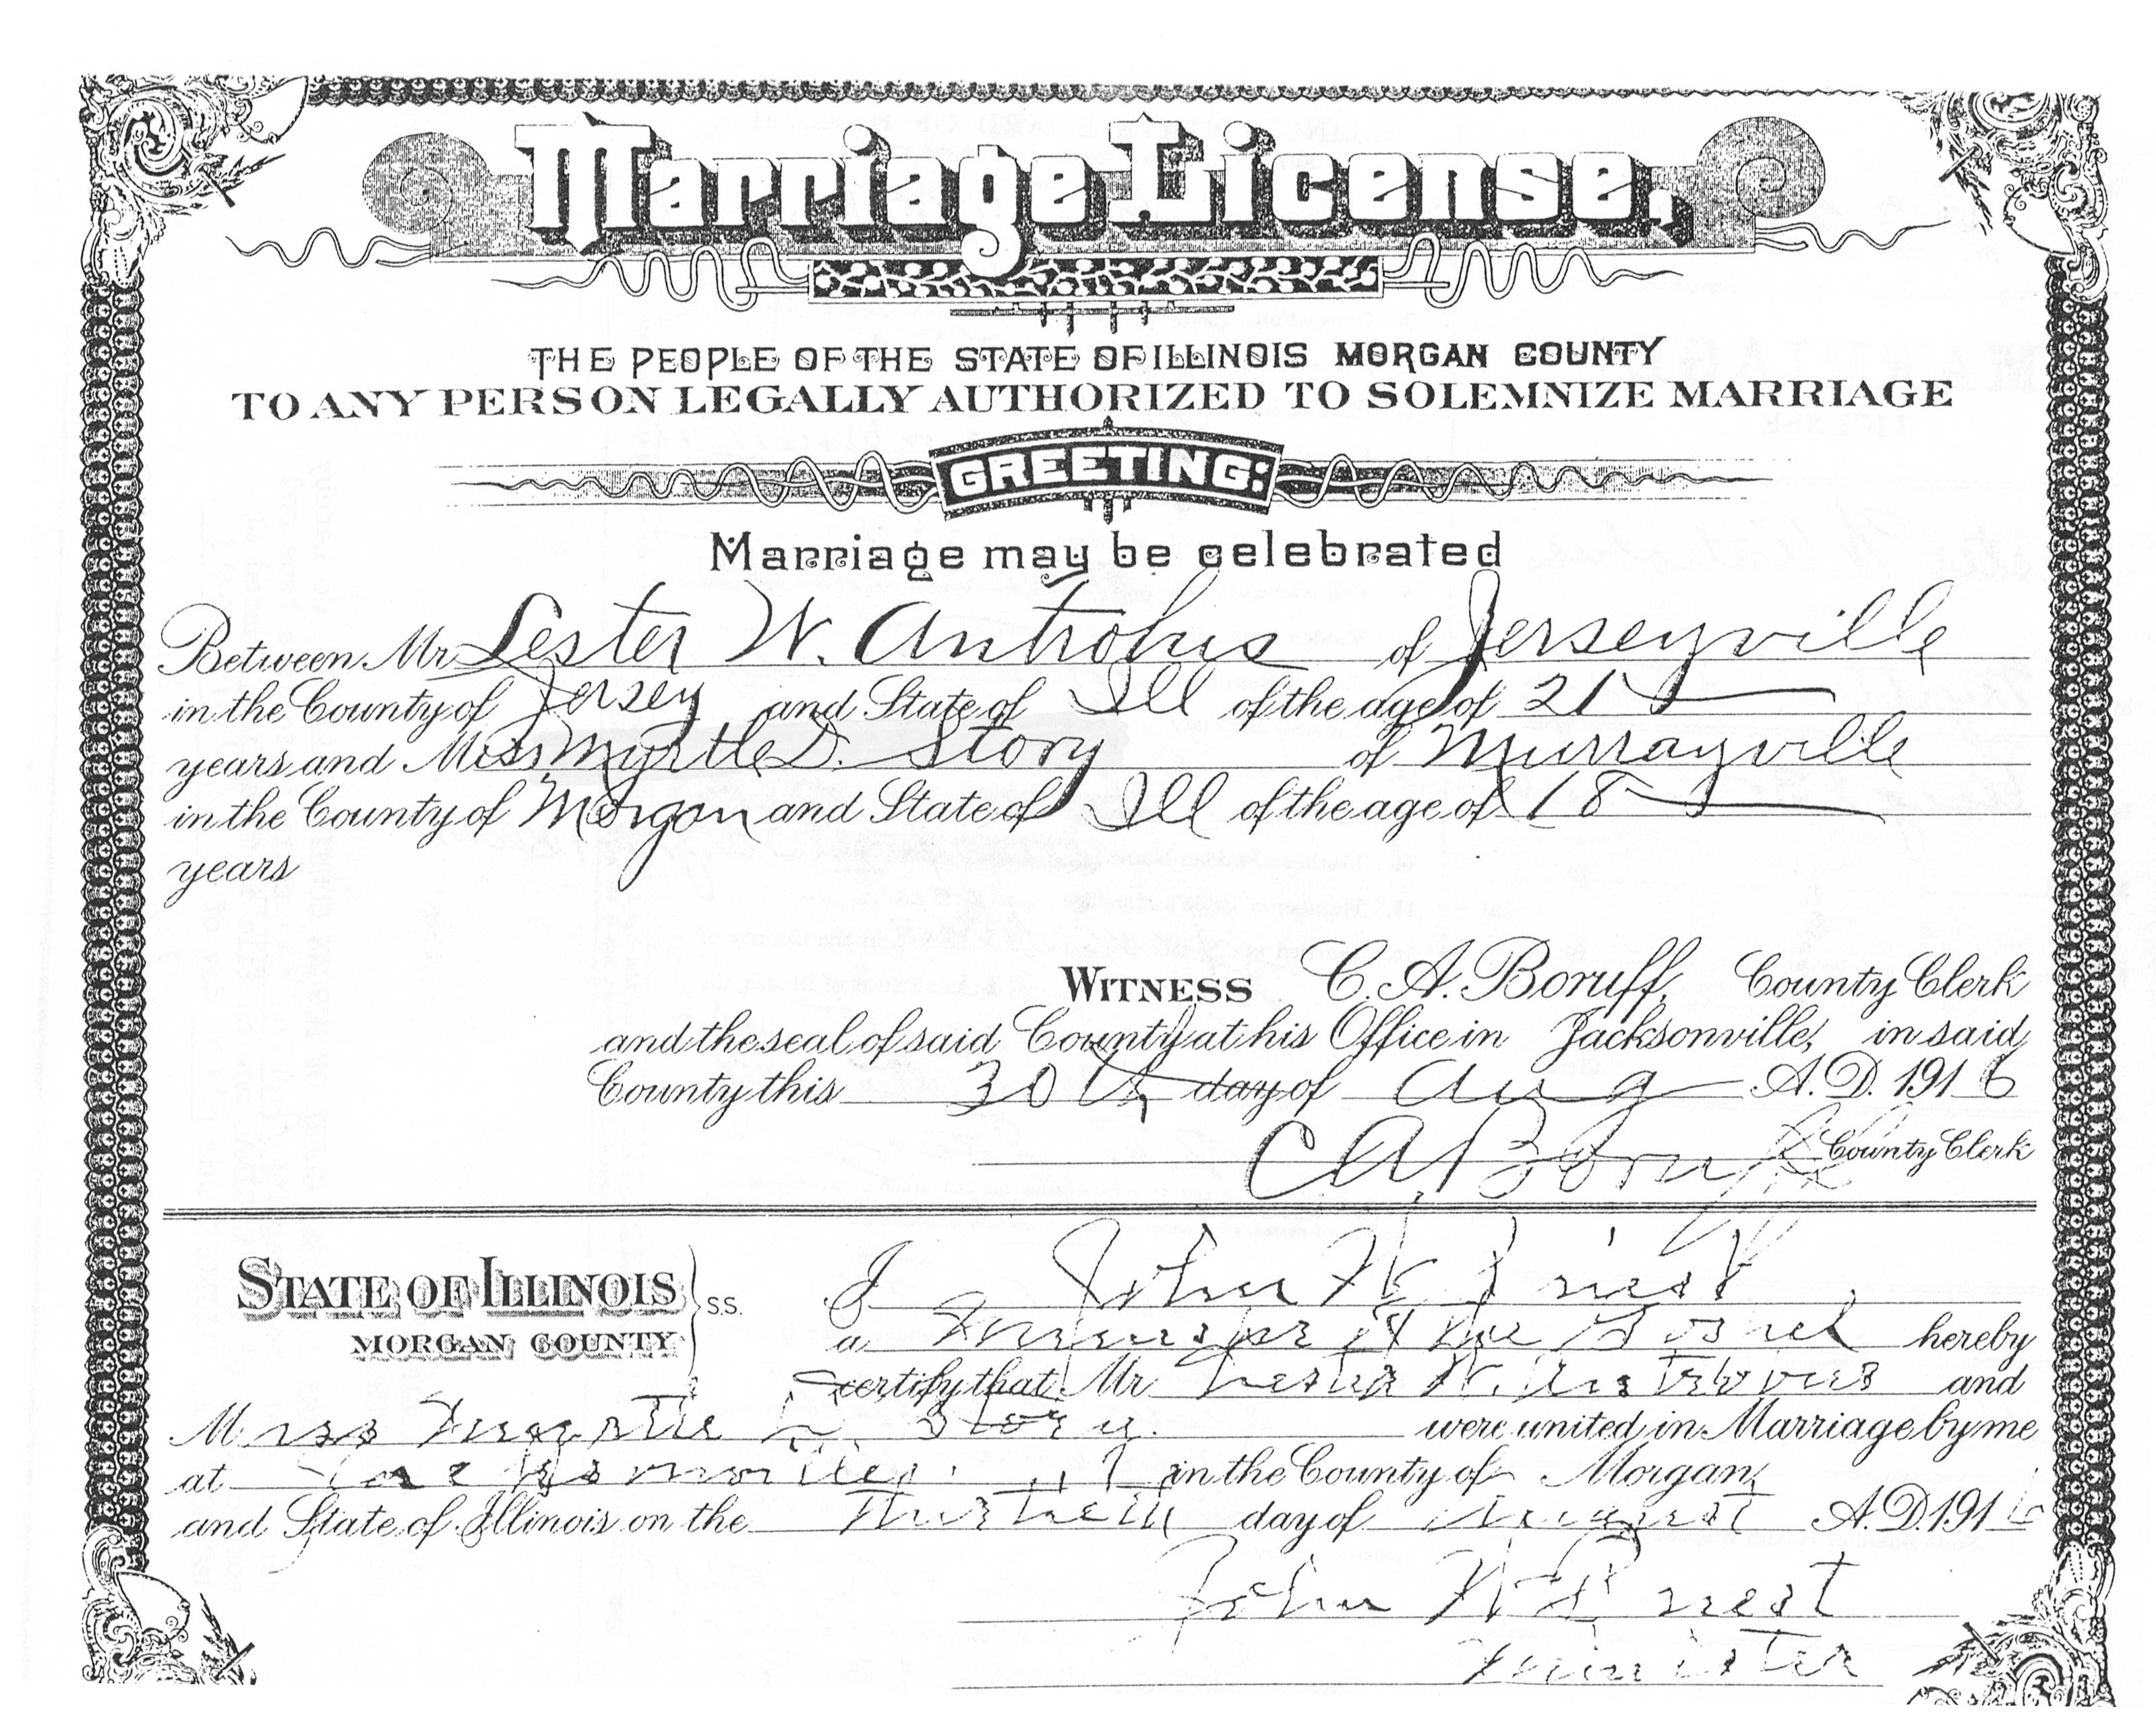 Marriage License,
THE PEOPLE OF THE STATE OF ILLINOIS MORGAN COUNTY
TO ANY PERSON LEGALLY AUTHORIZED TO SOLEMNIZE MARRIAGE
GREETING:
Marriage may be celebrated
Between Mr Lester W. Antrobus of Jerseyville
in the County of Jersey and State of Ill of the age of 21
years and Miss Myrtle D. Story of Murrayville
in the County of Morgan and State of Ill of the age of 18
years
WITNESS C. A. Boruff, County Clerk
and the seal of said County at his Office in Jacksonville, in said
County this 30th day of Aug A.D. 1916
C A Boruff County Clerk
STATE OF ILLINOIS S.S. I John W Priest
MORGAN COUNTY a Minister of the Gospel hereby
certify that Mr Lester W. Antrobus and
Miss Myrtle D. Story were united in Marriage by me
at Jacksonville in the County of Morgan
and State of Illinois on the Thirtieth day of August A.D. 1916
John W Priest
Minister